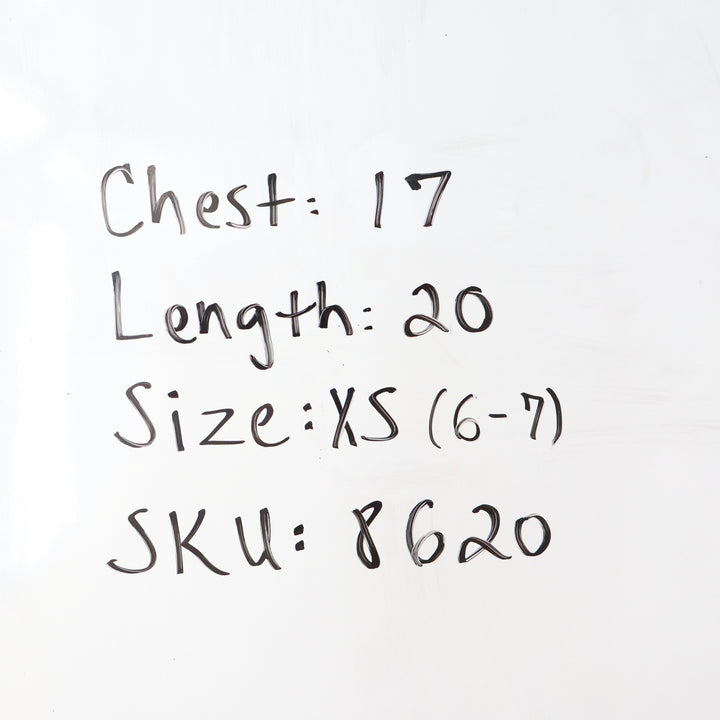 Chest: 17
Length: 20
Size: XS (6-7)
SKU: 8620